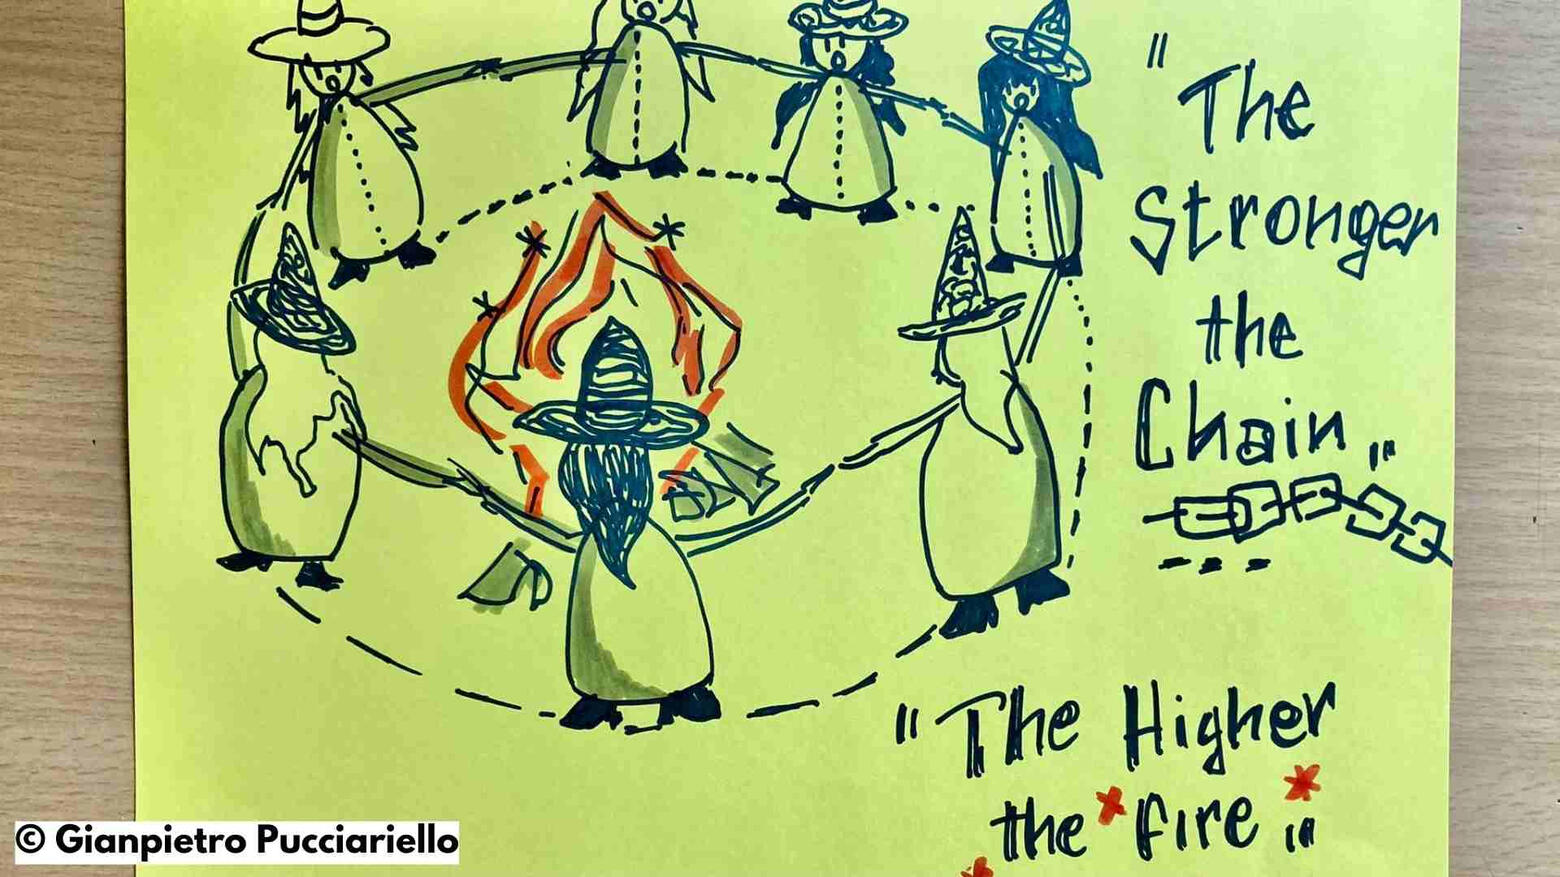 "The
Stronger
the
Chain"
...
"The Higher
the fire"
© Gianpietro Pucciariello